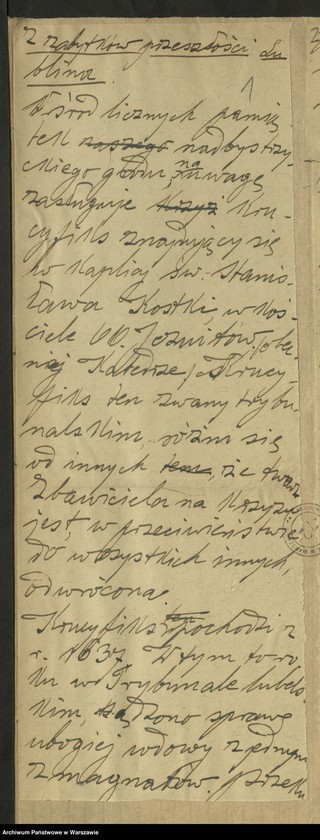 Z zabytków przeszłości Lu
blina.
Wśród licznych pamią
tek naszego nadbystrzy-
ckiego grodu, na uwagę
zasługuje krzyż Kru-
cyfiks znajdujący się
w Kaplicy św. Stanis-
ława Kostki, w koś-
ciele OO. Jezuitów, obec-
niej Katedrze. Krucy-
fiks ten zwany trybu-
nalskim różni się
od innych tem, że twarz
Zbawiciela na Krzyżu
jest, w przeciwieństwie
do wszystkich innych,
odwrócona.
Krucyfiks ten pochodzi z
r. 1637. W tym to ro
ku w Trybunale lubels
kim, sądzono sprawę
ubogiej wdowy z jednym
z magnatów.
Archiwum Państwowe w Warszawie